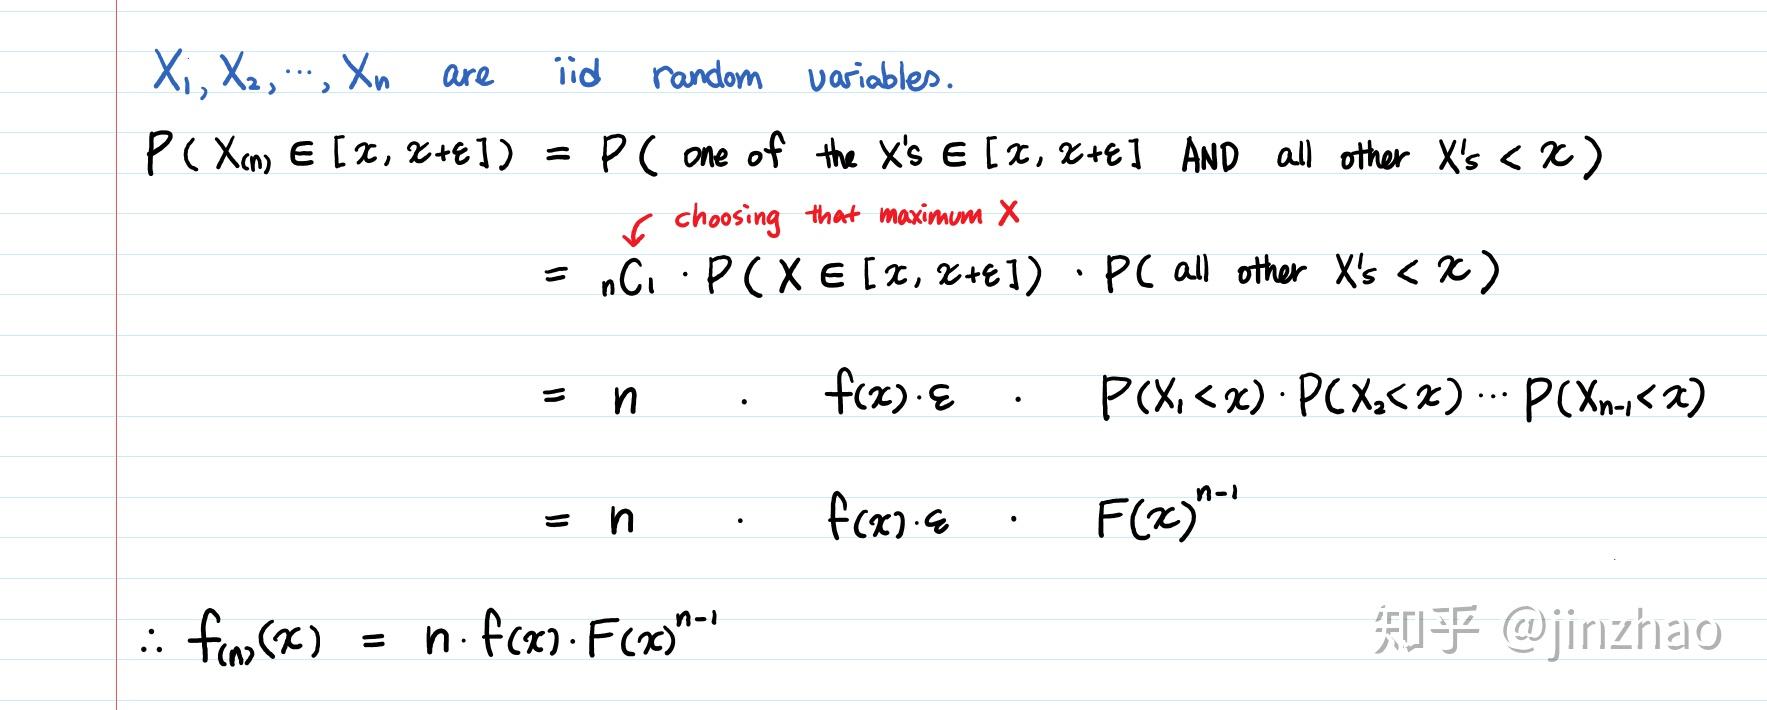 X₁, X₂, ..., Xn are iid random variables.
P( X(n) ∈ [x, x+ε]) = P( one of the X's ∈ [x, x+ε] AND all other X's < x )
choosing that maximum X
= nC₁ · P( X ∈ [x, x+ε]) · P( all other X's < x )
= n · f(x)·ε · P(X₁<x) · P(X₂<x) ... P(Xn-1<x)
= n · f(x)·ε · F(x)^n-1
∴ f(n)(x) = n · f(x) · F(x)^n-1
知乎 @jinzhao